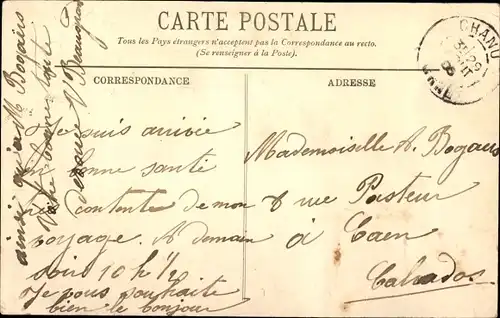 CARTE POSTALE
Tous les Pays étrangers n'acceptent pas la Correspondance au recto.
(Se renseigner à la Poste).
CORRESPONDANCE
ADRESSE
CHANU
ORNE
Je suis arrivée
en bonne santé
contente de mon
voyage. A demain
soir 10 h 1/2
Je vous souhaite
bien le bonjour
ainsi qu'à M Bogaers
Votre bonne tante
Mademoiselle A. Bogaers
8 rue Pasteur
à Caen
Calvados